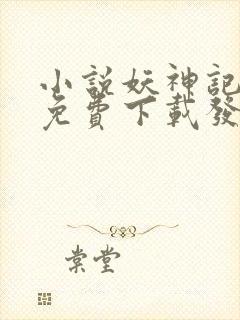 小說妖神記
免費下載發
棠堂